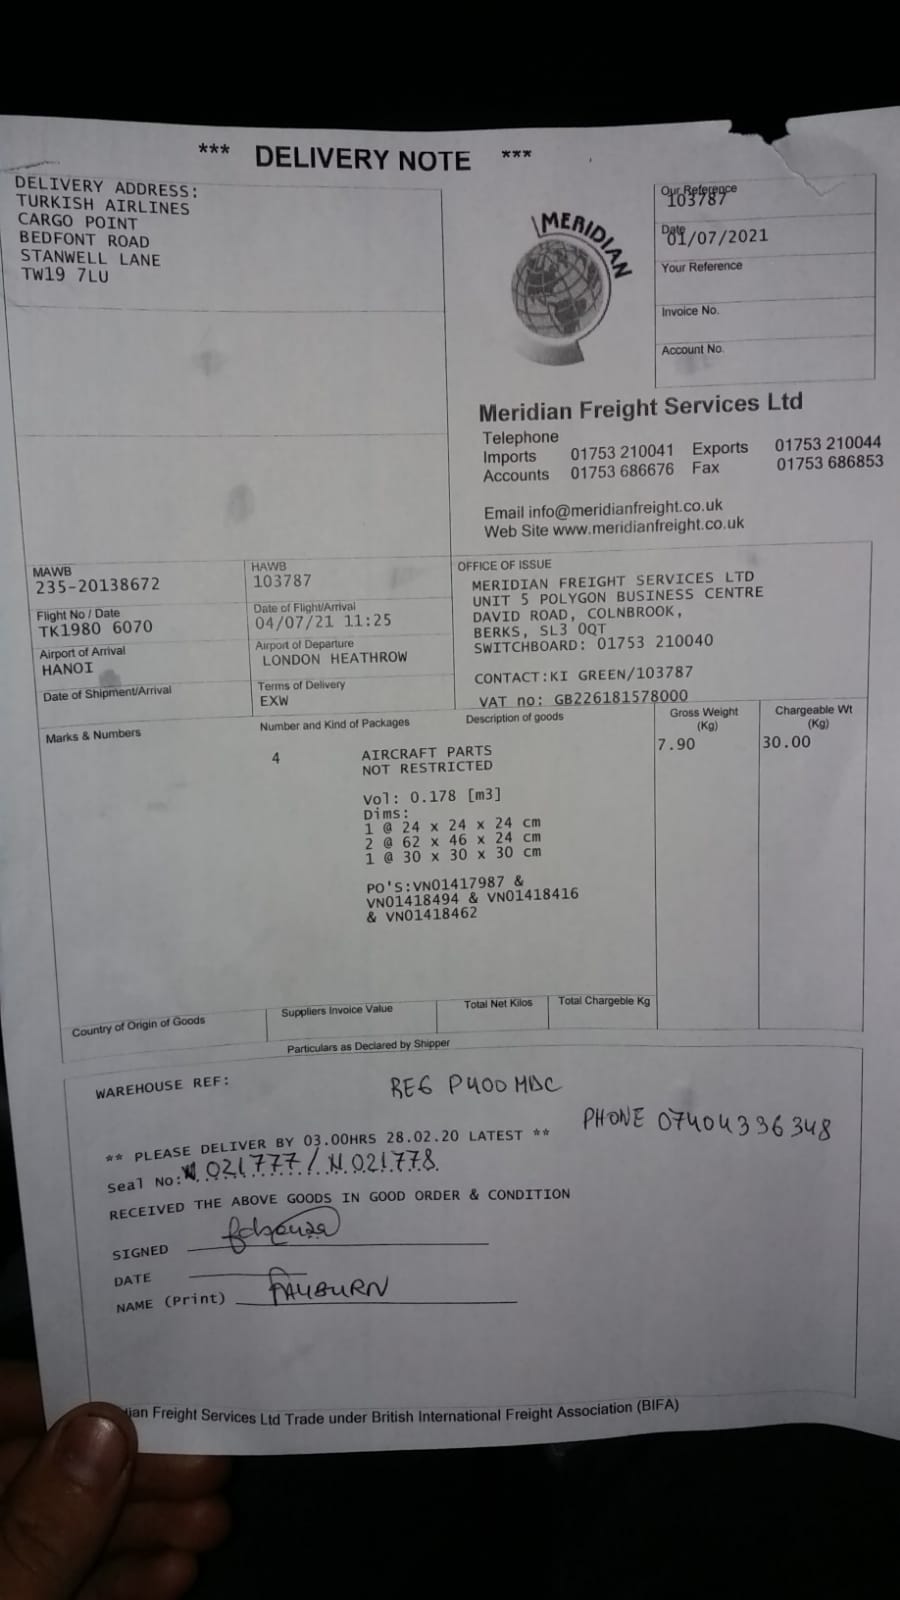 *** DELIVERY NOTE ***
DELIVERY ADDRESS:
TURKISH AIRLINES
CARGO POINT
BEDFONT ROAD
STANWELL LANE
TW19 7LU
MERIDIAN
Our Reference
103787
Date
01/07/2021
Your Reference
Invoice No.
Account No.
Meridian Freight Services Ltd
Telephone
Imports 01753 210041 Exports 01753 210044
Accounts 01753 686676 Fax 01753 686853
Email info@meridianfreight.co.uk
Web Site www.meridianfreight.co.uk
MAWB
235-20138672
HAWB
103787
Flight No / Date
TK1980 6070
Date of Flight/Arrival
04/07/21 11:25
Airport of Arrival
HANOI
Airport of Departure
LONDON HEATHROW
Date of Shipment/Arrival
Terms of Delivery
EXW
OFFICE OF ISSUE
MERIDIAN FREIGHT SERVICES LTD
UNIT 5 POLYGON BUSINESS CENTRE
DAVID ROAD, COLNBROOK,
BERKS, SL3 0QT
SWITCHBOARD: 01753 210040
CONTACT:KI GREEN/103787
VAT no: GB226181578000
Marks & Numbers
Number and Kind of Packages
Description of goods
Gross Weight
(Kg)
Chargeable Wt
(Kg)
4
AIRCRAFT PARTS
NOT RESTRICTED
7.90
30.00
Vol: 0.178 [m3]
Dims:
1 @ 24 x 24 x 24 cm
2 @ 62 x 46 x 24 cm
1 @ 30 x 30 x 30 cm
PO'S:VN01417987 &
VN01418494 & VN01418416
& VN01418462
Country of Origin of Goods
Suppliers Invoice Value
Total Net Kilos
Total Chargeble Kg
Particulars as Declared by Shipper
WAREHOUSE REF:
REG P400 MDC
PHONE 07404336348
** PLEASE DELIVER BY 03.00HRS 28.02.20 LATEST **
Seal No: 021777/N021778
RECEIVED THE ABOVE GOODS IN GOOD ORDER & CONDITION
SIGNED
DATE
NAME (Print) RAYBURN
ian Freight Services Ltd Trade under British International Freight Association (BIFA)